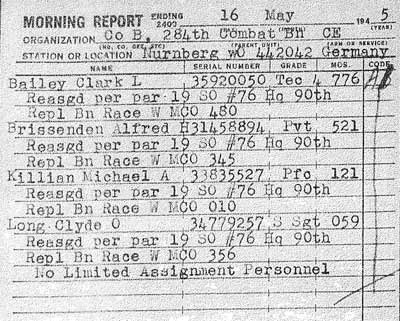 MORNING REPORT ENDING 2400 16 May 1945 (YEAR)
ORGANIZATION Co B, 284th Combat Bn CE
(NO. CO, DET, ETC) (PARENT UNIT) (ARM OR SERVICE)
STATION OR LOCATION Nurnberg wO 442042 Germany
NAME SERIAL NUMBER GRADE MOS. CODE
Bailey Clark L 35920050 Tec 4 776
Reasgd per par 19 SO #76 Hq 90th
Repl Bn Race W MCO 480
Brissenden Alfred H31458894 Pvt 521
Reasgd per par 19 SO #76 Hq 90th
Repl Bn Race W MCO 345
Killian Michael A 33835527 Pfc 121
Reasgd per par 19 SO #76 Hq 90th
Repl Bn Race W MCO 010
Long Clyde O 34779257 S Sgt 059
Reasgd per par 19 SO #76 Hq 90th
Repl Bn Race W MCO 356
No Limited Assignment Personnel